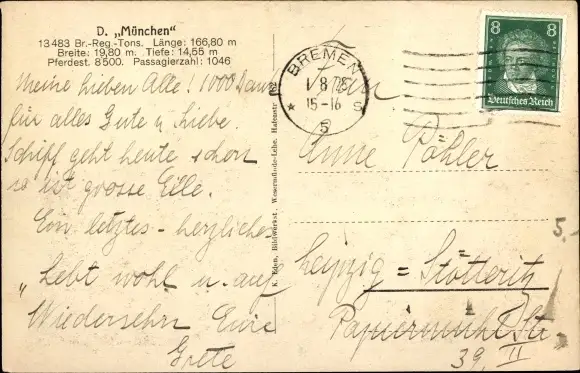 D. „München"
13483 Br.-Reg.-Tons. Länge: 166,80 m
Breite: 19,80 m. Tiefe: 14,55 m
Pferdest. 8500. Passagierzahl: 1046
Meine lieben Alle! 1000 Dank
für alles Gute u. Liebe.
Schiff geht heute schon
so ist grosse Eile.
Ein letztes - herzliches
„Lebt wohl u. auf
Wiedersehn Eure
Grete
BREMEN
1 8
15-16
5
S
8 8
Deutsches Reich
Anne Pöhler
Leipzig = Stötteritz
Papiermühlstr
39, II
5.-